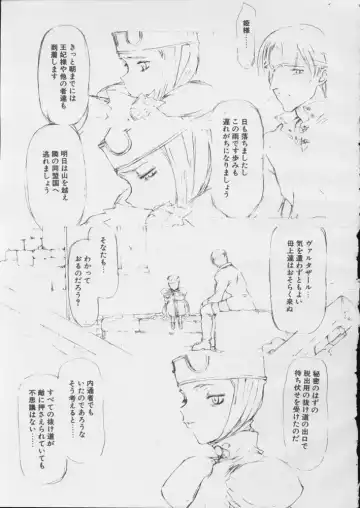 姫様…
日も落ちましたし
この雨です歩みも
遅れがちになりましょう
きっと朝までには
王妃様や他の者達も
到着します
明日は山を越え
隣の同盟国へ
逃れましょう
ヴァルタザール…
気を遣わずともよい
母上達はおそらく来ぬ
そなたも…
わかって
おるのだろう？
秘密のはずの
脱出用の抜け道の出口で
待ち伏せを受けたのだ
内通者でも
いたのであろうな
そう考えると…
すべての抜け道が
敵に押さえられていても
不思議はない……